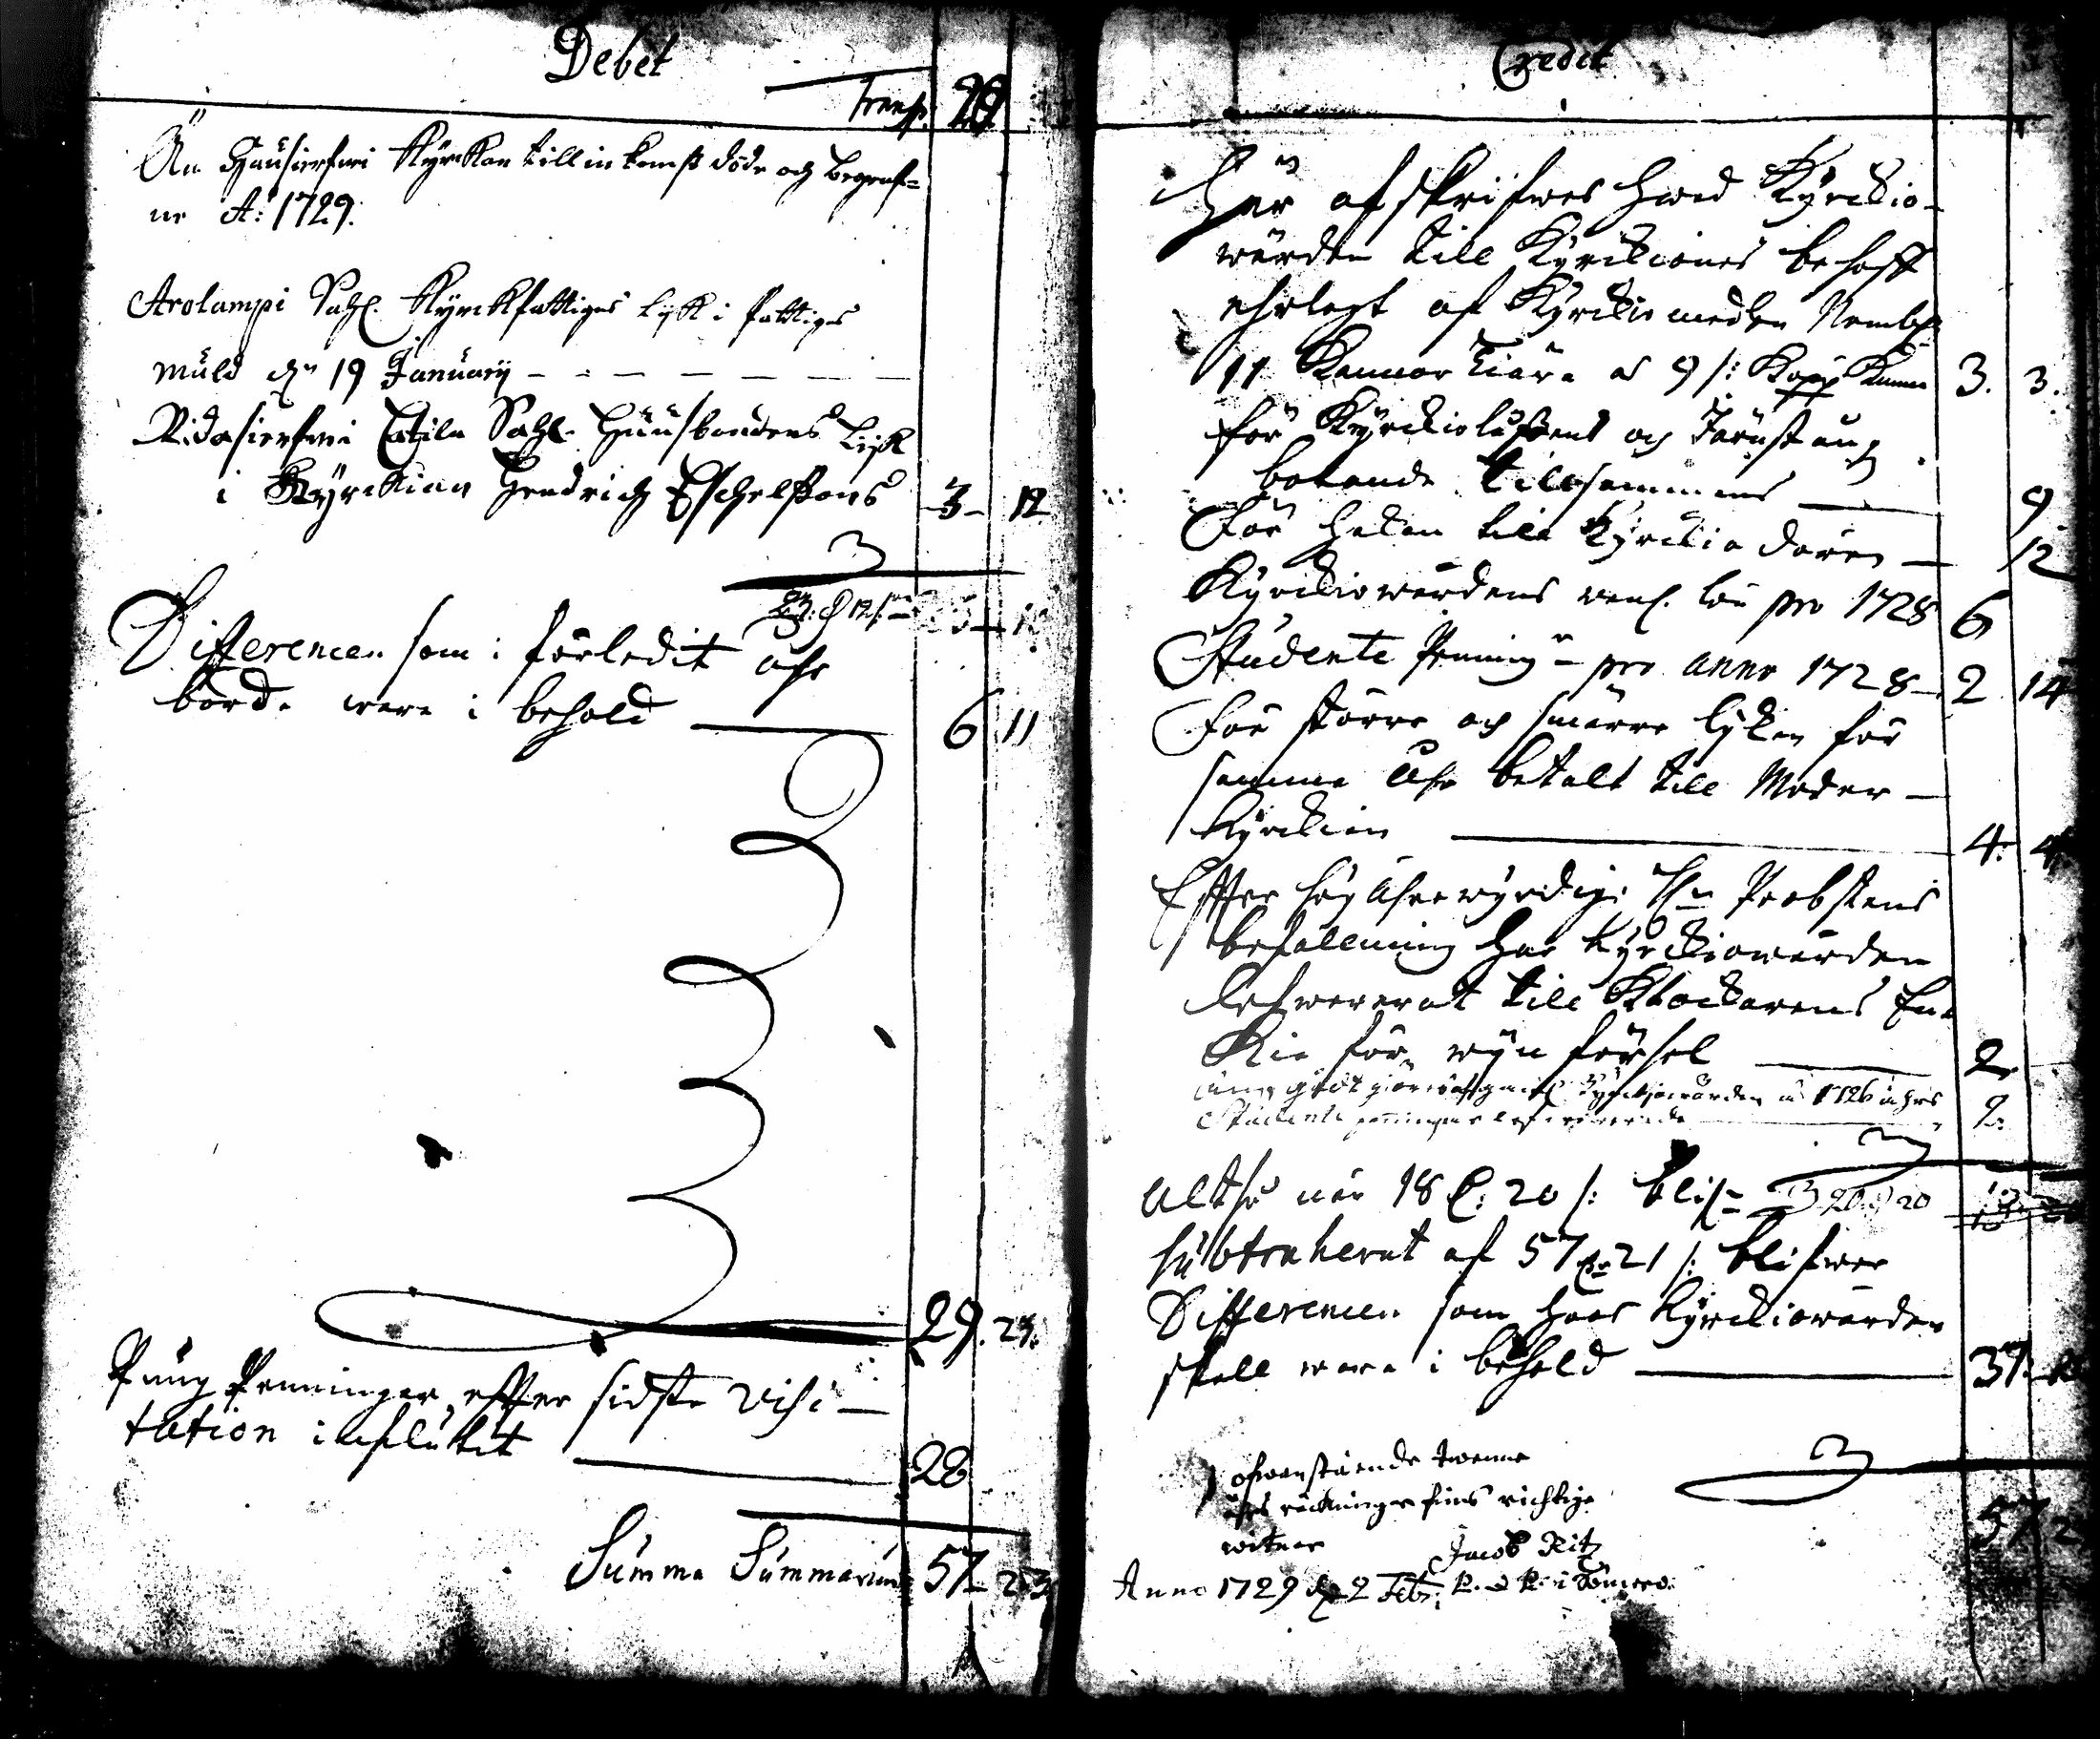 Debet
Transp. 20
Än Hausierfwi Kyrckan tillinkomst döde och begraf=
ne A:o 1729.
Arolampi Sahl. Kyrckfattiges Lyk i fattiges
muld d. 19 Januarij
Ridasierfwi Cathila Sahl. Huusbondens Lijk
i Kyrckian Hendrich Eschelssons 3 12
23: 12
Differencen som i förledit åhr
borde wara i behold 6 11
29. 23.
Pung Penningar efter sidste Visi-
tation influtit 28
Summa Summarum 57 23
Credit
Här afskrifwes hwad Kyrckio-
wärden till Kyrckiones behoff
uhrlagt af Kyrckio medlen Nembl.
11 Kannor Tiära a 9 /: Kopp Kanna 3. 3.
för Kyrckiolåsens och Järnstång
botande tillsammans 9
För Hakan till Kyrckio dören 12
Kyrckiowärdens lön pro 1728 6
Studente Penning pro anno 1728 2 14
För större och smärre lijken för
samma åhr betalt till Moder-
Kyrckian 4: 4
Effter höghährewyrdige Hr Probstens
befallning har Kyrckiowärden
lefwererat till Klockarens En-
kia för wijn försel 2
Kyrckiowärden 1726 åhrs
Studente penningar lefwererade 2.
Altså när 18 20 /: blif: 20 20
subtraherat af 57 21 /: blifwer
Differencen som hoos Kyrckiowärden
skall wara i behold 37:
ofwanstående twenne
åhrs räckningar fins richtige
witnar Jacob Ritz
57 23
Anno 1729 d. 2 Febr: P. & P. i Somero.